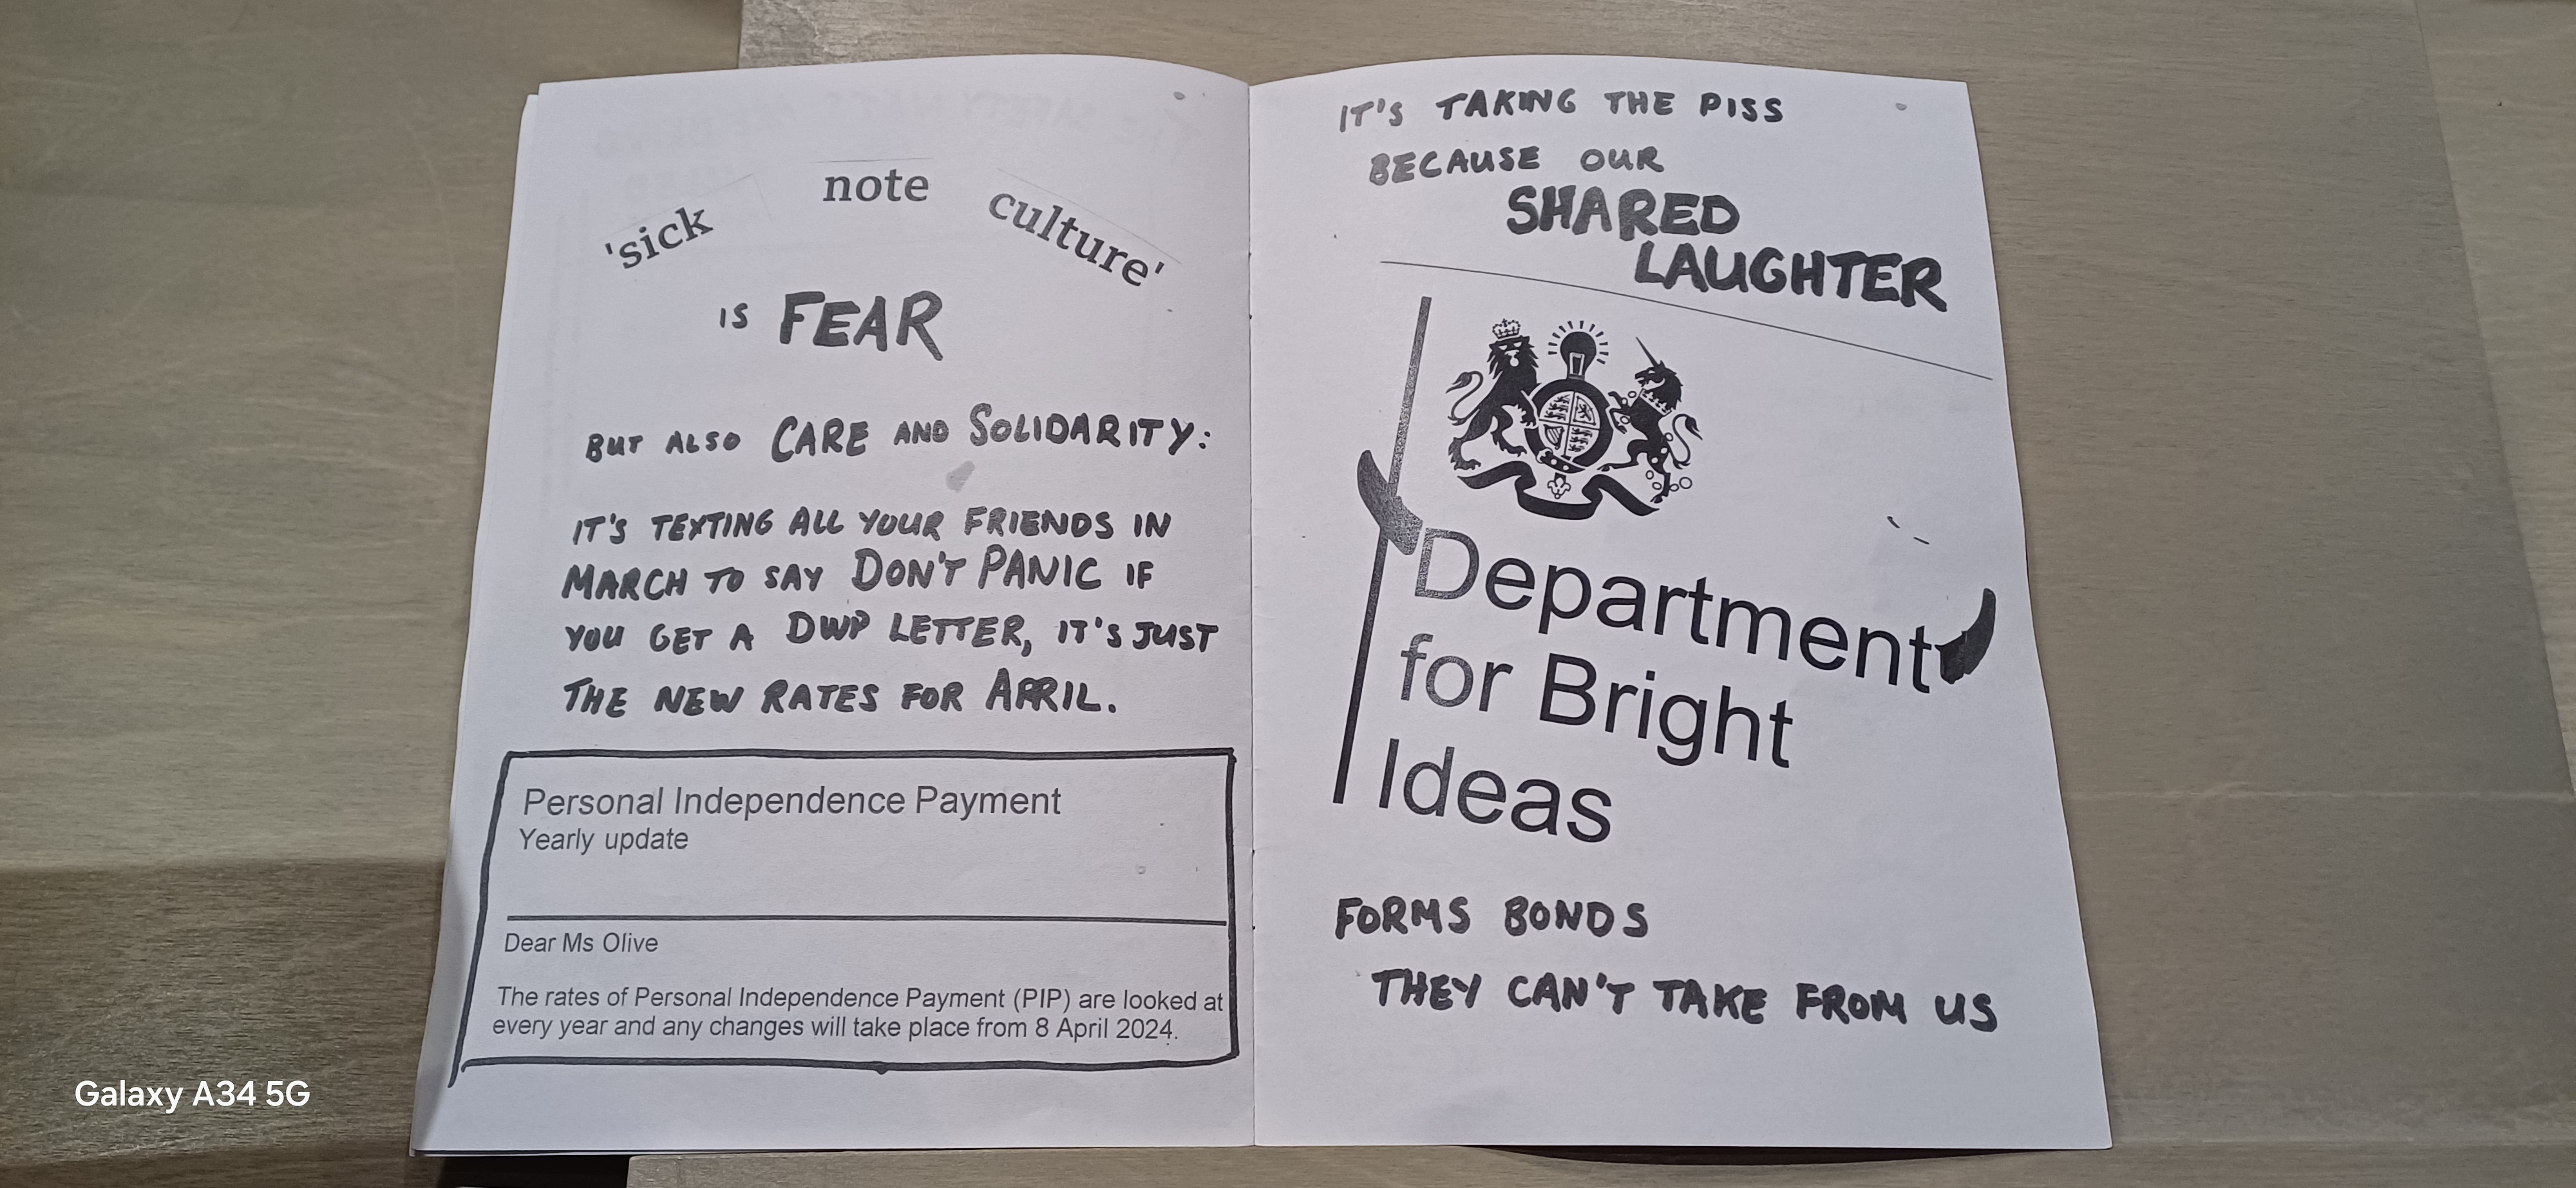 'sick note culture'
IS FEAR
BUT ALSO CARE AND SOLIDARITY:
IT'S TEXTING ALL YOUR FRIENDS IN
MARCH TO SAY DON'T PANIC IF
YOU GET A DWP LETTER, IT'S JUST
THE NEW RATES FOR APRIL.
Personal Independence Payment
Yearly update
Dear Ms Olive
The rates of Personal Independence Payment (PIP) are looked at
every year and any changes will take place from 8 April 2024.
IT'S TAKING THE PISS
BECAUSE OUR
SHARED
LAUGHTER
Department
for Bright
Ideas
FORMS BONDS
THEY CAN'T TAKE FROM US
Galaxy A34 5G